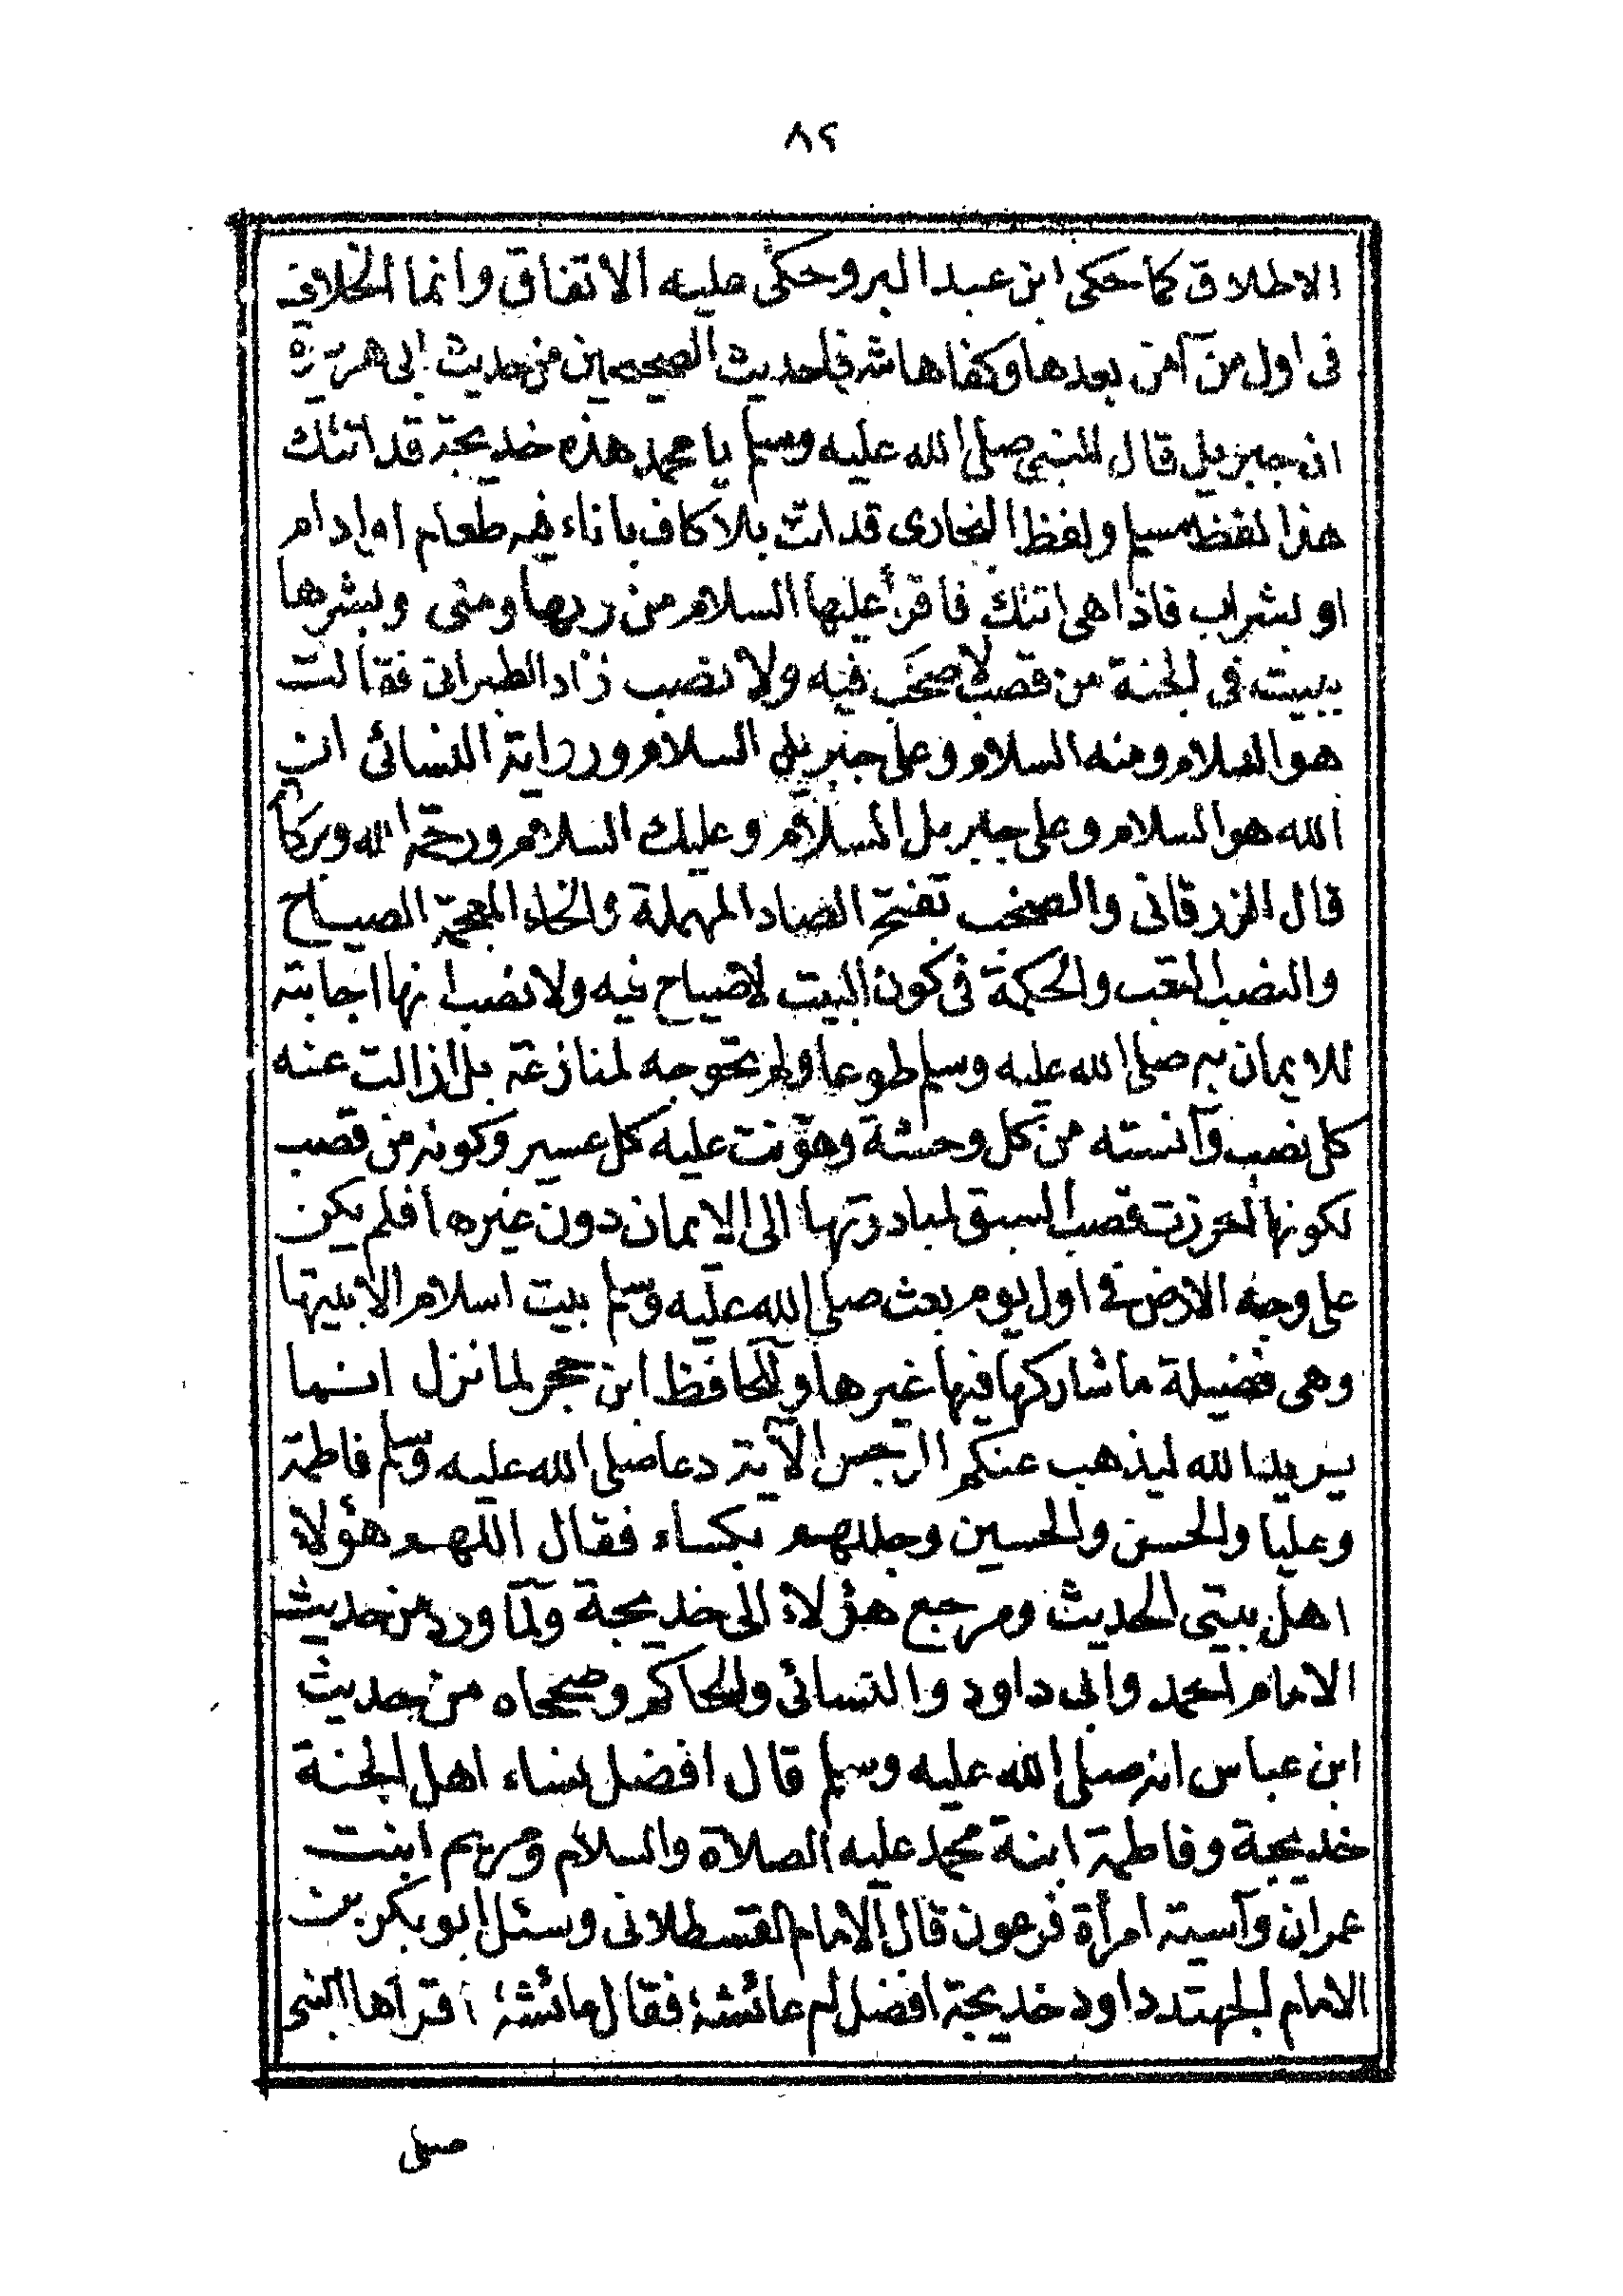 ٨٢
الاطلاق كما حكى ابن عبد البر وحكى عليه الاتفاق وانما الخلاف
فى اول من آمن بعدها وكفاها شرفا حديث الصحيحين من حديث ابى هريرة
ان جبريل قال للنبى صلى الله عليه وسلم يا محمد هذه خديجة قد اتتك
هذا لفظ مسلم ولفظ البخارى قد اتت بلا كاف باناء فيه طعام او ادام
او بشراب فاذا هى اتتك فاقرأ عليها السلام من ربها ومنى وبشرها
ببيت فى الجنة من قصب لا صخب فيه ولا نصب زاد الطبرانى فقالت
هو السلام ومنه السلام وعلى جبريل السلام ورواية النسائى ان
الله هو السلام وعلى جبريل السلام وعليك السلام ورحمة الله وبركاته
قال الزرقانى والصخب بفتح الصاد المهملة والخاء المعجمة الصياح
والنصب التعب والحكمة فى كون البيت لا صياح فيه ولا نصب انها اجابته
للايمان به صلى الله عليه وسلم طوعا ولم تحوجه لمنازعة بل ازالت عنه
كل نصب وآنسته من كل وحشة وهونت عليه كل عسير وكونه من قصب
لكونها احرزت قصب السبق لمبادرتها الى الايمان دون غيرها فلم يكن
على وجه الارض فى اول يوم بعث صلى الله عليه وسلم بيت اسلام الا بيتها
وهى فضيلة ما شاركها فيها غيرها وللحافظ ابن حجر لما نزل انما
يريد الله ليذهب عنكم الرجس الآية دعا صلى الله عليه وسلم فاطمة
وعليا والحسن والحسين وجللهم بكساء فقال اللهم هؤلاء
اهل بيتى الحديث ومرجع هؤلاء الى خديجة ولما ورد من حديث
الامام احمد وابى داود والنسائى والحاكم وصححاه من حديث
ابن عباس انه صلى الله عليه وسلم قال افضل نساء اهل الجنة
خديجة وفاطمة ابنة محمد عليه الصلاة والسلام ومريم ابنت
عمران وآسية امرأة فرعون قال الامام القسطلانى وسئل ابو بكر بن
الامام المجتهد داود خديجة افضل ام عائشة فقال عائشة اقرأها النبى
صلى